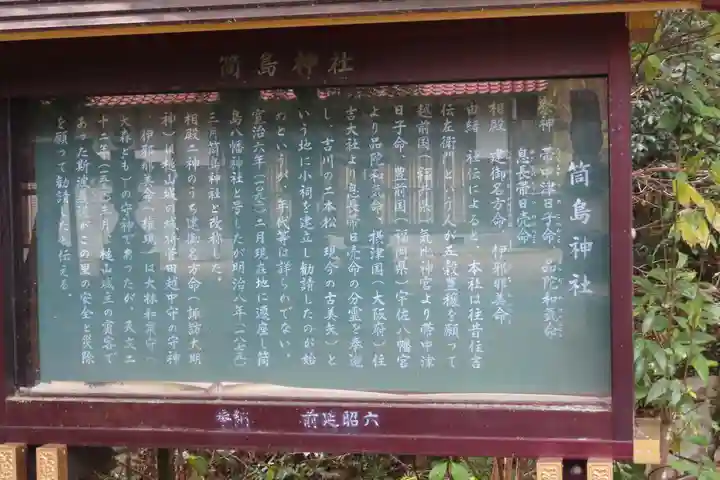 筒島神社
筒島神社
祭神 帯中津日子命 品陀和気命
息長帯日売命
相殿 建御名方命 伊邪那美命
由緒 社伝によると、本社は往昔住吉
伝左衛門という人が五穀豊穣を願って
越前国(福井県)気比神宮より帯中津
日子命、豊前国(福岡県)宇佐八幡宮
より品陀和気命、摂津国(大阪府)住
吉大社より息長帯日売命の分霊を奉遷
し、古川の二本松(現今の古美矢)と
いう地に小祠を建立し勧請したのが始
めというが、年代等は詳らかでない。
寛治六年(一〇九二)二月現在地に遷座し筒
島八幡神社と号したが明治八年(一八七五)
三月筒島神社と改称した。
相殿二神のうち建御名方命(諏訪大明
神)は桃山城の城將菅田越中守の守神
伊邪那美命(権現)は大林和泉守(
大林とも)の守神であったが、天文二
十二年(一五五三)三月
あった
を願って勧請したと伝える。
奉納 前延昭六